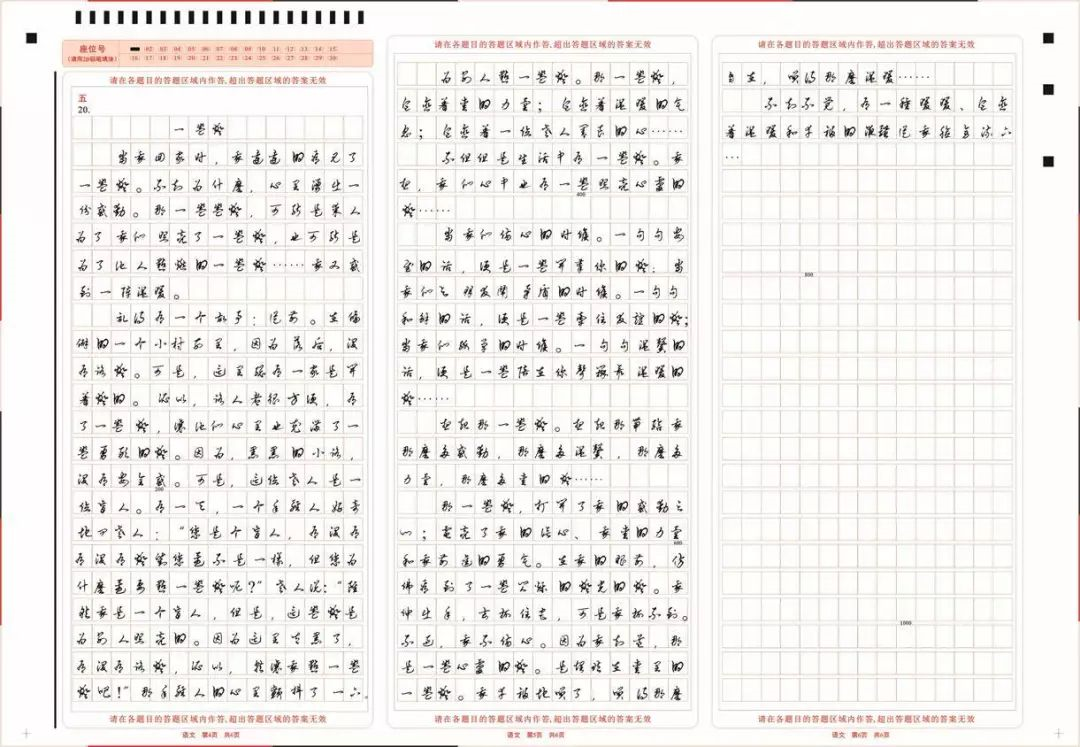 座位号
(请用2B铅笔填涂)
02 03 04 05 06 07 08 09 10 11 12 13 14 15
16 17 18 19 20 21 22 23 24 25 26 27 28 29 30
请在各题目的答题区域内作答,超出答题区域的答案无效
五
20.
一盏灯
当我回家时，我远远的看见了
一盏灯。不知为什麼，心里涌生一
份感动。那一盏盏灯，可能是某人
为了我们照亮了一盏灯，也可能是
为了他人点燃的一盏灯……我又感
到一阵温暖。
记得有一个故事：从前。在偏
僻的一个小村庄里，因为落后，没
有路灯。可是，这里总有一家是开
着灯的。所以，路人都很方便，有
了一盏灯，让他们心里也充满了一
盏勇敢的灯。因为，黑黑的小路，
没有安全感。可是，这位老人是一
200
位盲人。有一天，一个年轻人好奇
地问老人：“您是个盲人，有没有
有没有灯对您还不是一样，但您为
什麼还要点一盏灯呢？”老人说：“虽
然我是一个盲人，但是，这盏灯是
为别人照亮的。因为这里天黑了，
有没有路灯，所以，就让我点一盏
灯吧！”那年轻人的心里颤抖了一下。
请在各题目的答题区域内作答,超出答题区域的答案无效
语文 第4页 共6页
请在各题目的答题区域内作答,超出答题区域的答案无效
为别人点一盏灯。那一盏灯，
包含着爱的力量；包含着温暖的气
息；包含着一位老人善良的心……
不但但是生活中有一盏灯。现
在，我们心中也有一盏照亮心灵的
400
灯……
当我们伤心的时候。一句句安
慰的话，便是一盏开导你的灯；当
我们与朋友闹矛盾的时候。一句句
和解的话，便是一盏牵住友谊的灯；
当我们孤单的时候。一句句温馨的
话，便是一盏陪在你身旁温暖的
灯……
我想那一盏灯。我想那带给我
那麼多感动，那麼多温馨，那麼多
力量，那麼多爱的灯……
那一盏灯，打开了我的感动之
门；点亮了我的信心、我爱的力量
600
和我前进的勇气。在我的眼前，仿
佛看到了一盏的灯光的灯。我
伸出手，去抓住光，可是我抓不到。
不过，我不伤心。因为我知道，那
是一盏心灵的灯。是埋藏在爱里的
一盏灯。我幸福地笑了，笑得那麼
请在各题目的答题区域内作答,超出答题区域的答案无效
语文 第5页 共6页
请在各题目的答题区域内作答,超出答题区域的答案无效
自在，笑得那麼温暖……
不知不觉，有一种暖暖、包含
着温暖和幸福的液体从我脸边流下
…
800
1000
请在各题目的答题区域内作答,超出答题区域的答案无效
语文 第6页 共6页